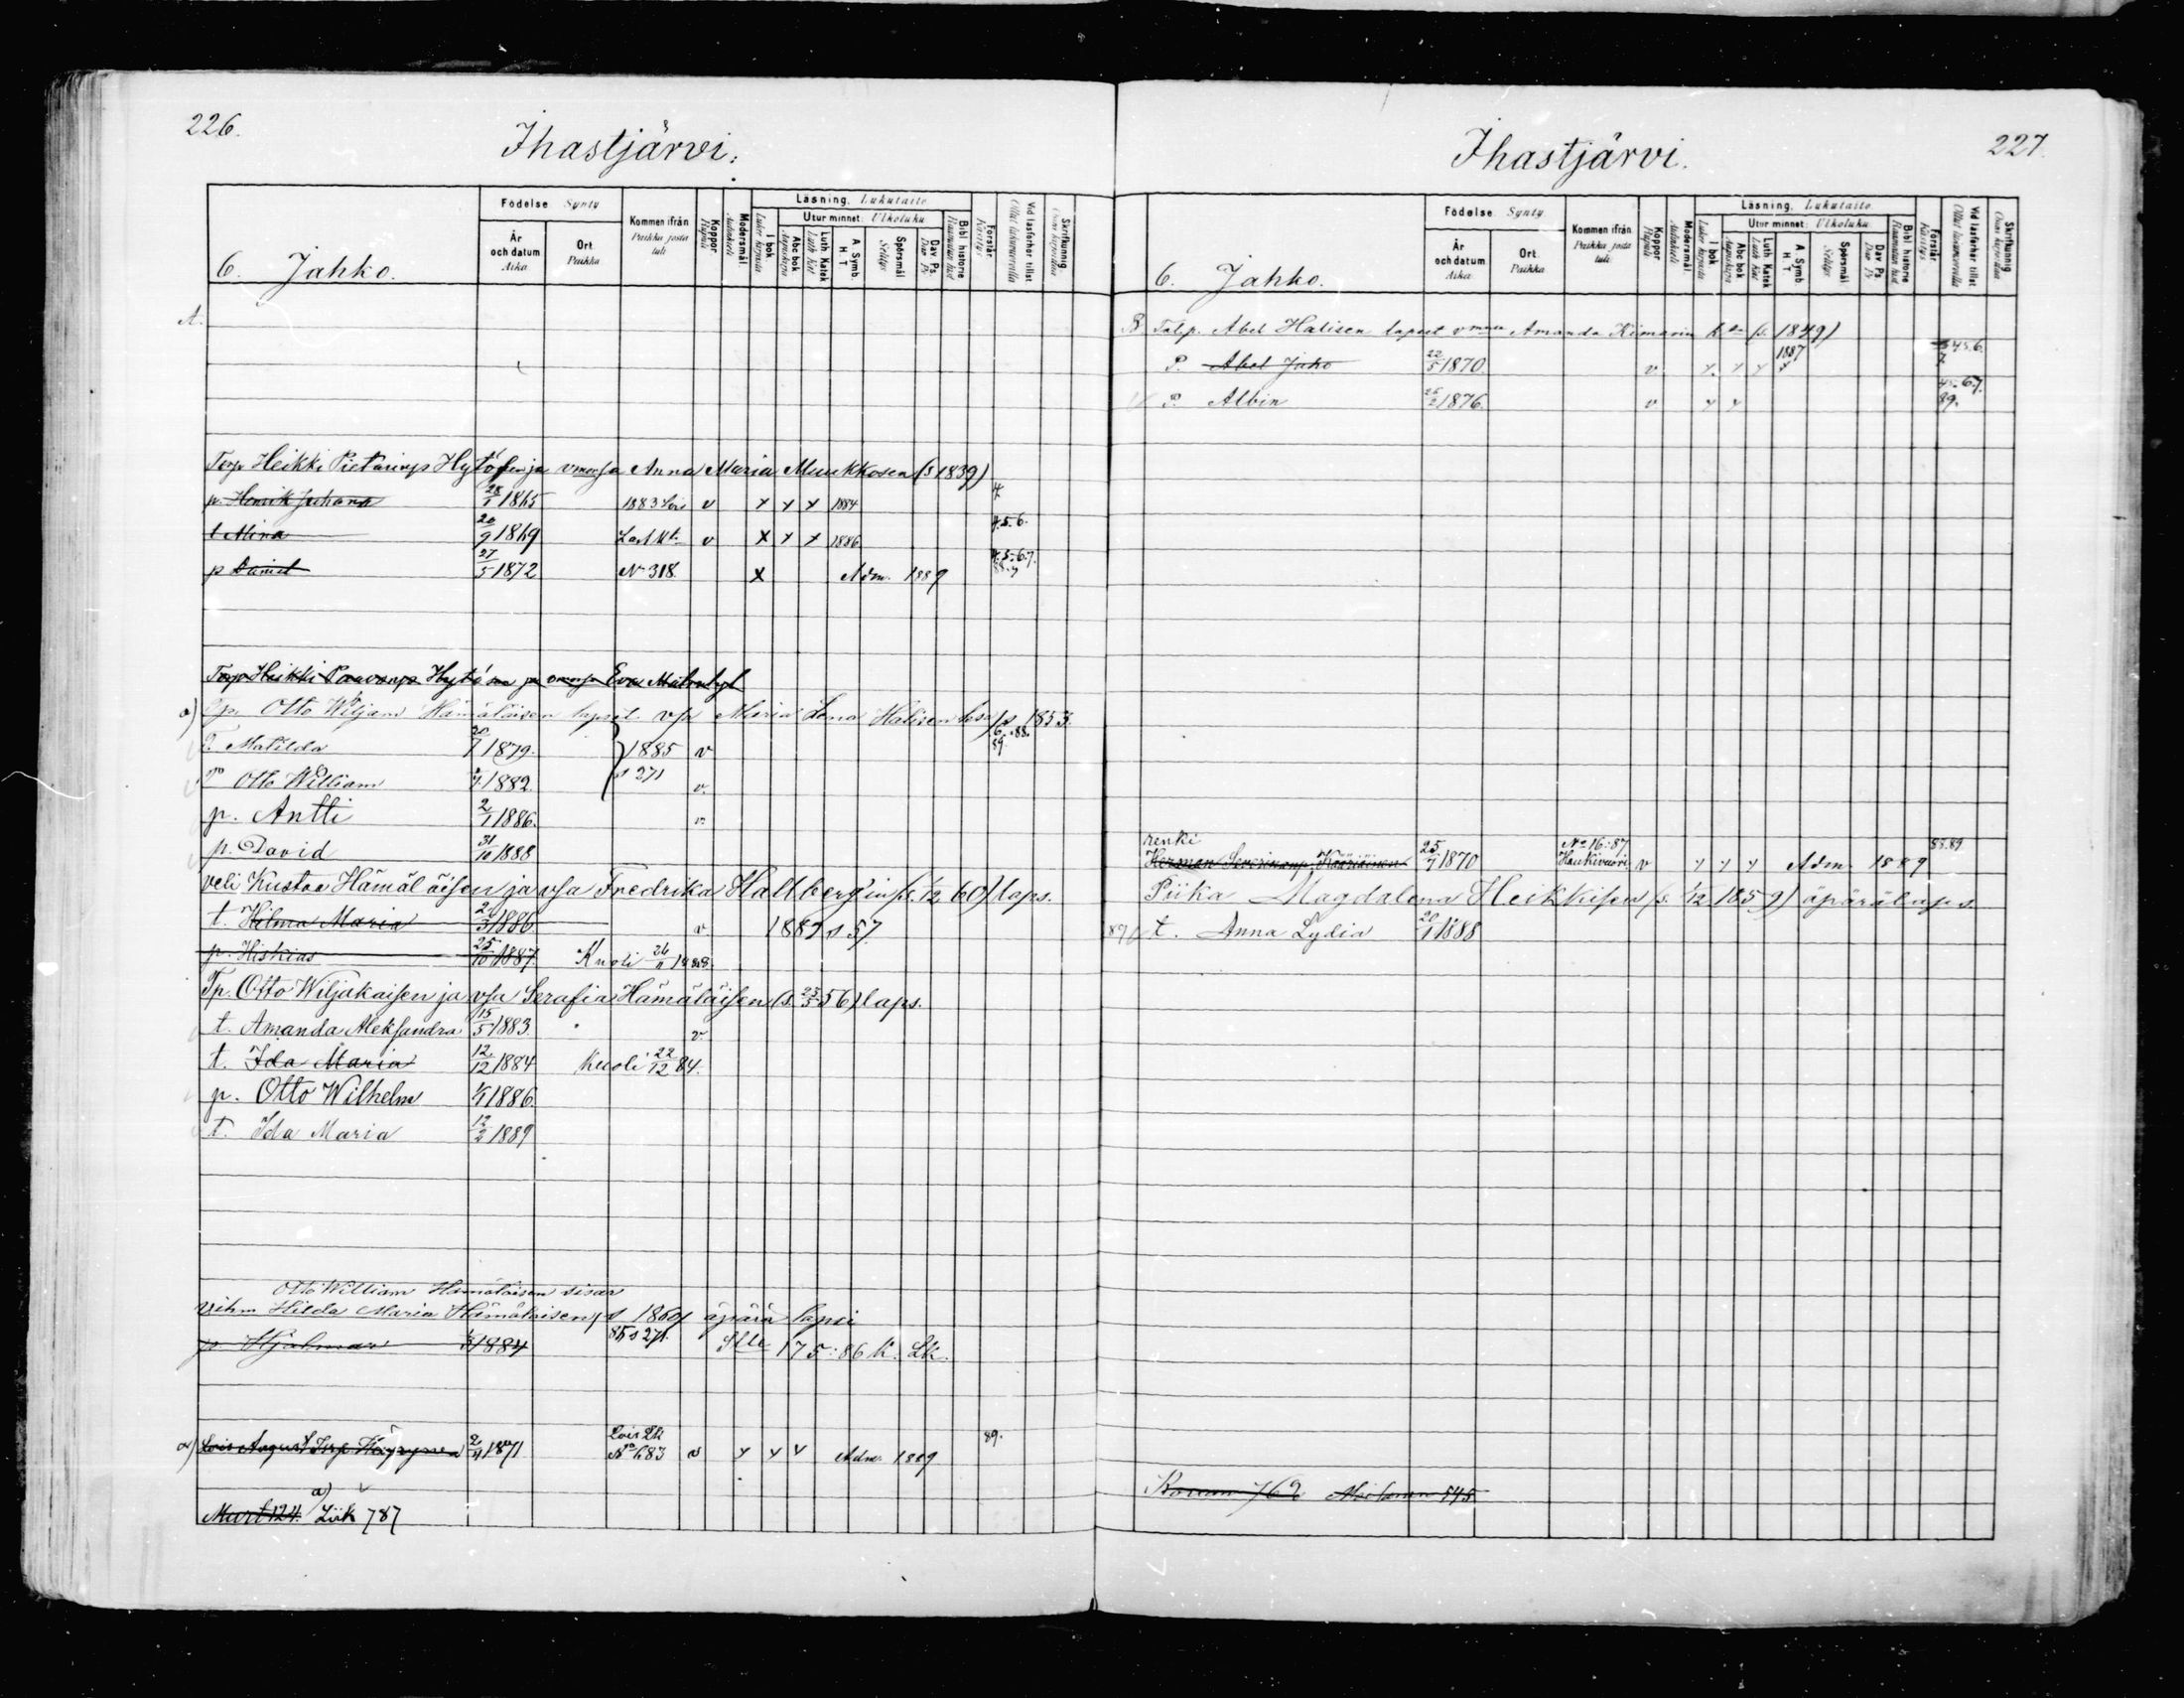 226.
Ihastjärvi.
6. Jahko.
Födelse Synty
År och datum Aika
Ort Paikka
Kommen ifrån Paikka josta tuli
Koppor Rupuli
Modersmål Äidinkieli
Läsning. Lukutaito
I bok Luku kirjasta
Utur minnet. Ulkoluku
Abc bok Aapiskirja
Luth. Katek Luth. Kat
A. Symb. H. T
Spörsmål Selitys
Dav. Ps
Bibl. historie
Förstår Käsitys
Vid läsförhör tillst
Skrifkunnig
A.
Torp Heikki Pietarinp Hytösen ja vmonsa Anna Maria Muukkosen (s 1839)
p. Henrik Juhana 28/1 1865 1883 v x x x 1884 4
t Mina 20/9 1869 v x x x 1886 4.5.6.
p Daniel 27/5 1872 No 318. x Adm. 1889 4.5.6.7.
Torp Heikki Hytösen ja vmonsa Eva
a) Tp. Otto Wiljam Hämäläisen lapset vsa Maria Lena Halisen ksa s 1853.
T. Matilda 1879. 1885 v 89
P Otto William 1882. s 271 v.
p. Antti 2/1 1886. v.
p. David 31/10 1888
veli Kustaa Hämäläisen ja vsa Fredrika Hallberg'in (s. 12 60) laps.
t. Hilma Maria 2/3 1886 v 1889 s 57.
p. Hiskias 25/10 1887. Kuoli 26/11 1888.
Tp. Otto Wiljakaisen ja vsa Serafia Hämäläisen (s. 23/5 56) laps.
t. Amanda Aleksandra 15/5 1883. v.
t. Ida Maria 12/12 1884 Kuoli 22/12 84.
p. Otto Wilhelm 1886.
t. Ida Maria 12/2 1889
Otto William Hämäläisen sisar
vihm Hilda Maria Hämäläisen s 1860 äpärä lapsi
p Hjalmar 1884 85 s 271. Slle 175:86 K. Lk.
a) Lois August 2/4 1871 Lois Lk No 683 v x x v Adm 1889 89.
Murt 124. a) Liik 787
227.
Ihastjärvi.
6. Jahko.
Födelse Synty
År och datum Aika
Ort Paikka
Kommen ifrån Paikka josta tuli
Koppor Rupuli
Modersmål Äidinkieli
Läsning. Lukutaito
I bok Luku kirjasta
Utur minnet. Ulkoluku
Abc bok Aapiskirja
Luth. Katek Luth. Kat
A. Symb H. T
Spörsmål Selitys
Dav. Ps
Bibl. historie
Förstår Käsitys
Vid läsförhör tillst
Skrifkunnig
B. Talp. Abel Halisen lapset vmon Amanda Kiimarin (s. 1849)
P. Abel Juho 22/5 1870 v x x x 1887 x 4 5.6. 7
P. Albin 26/2 1876. v x x 4 5.6.7. 89.
renki
Herman Severinanp. Kääriäinen 25/7 1870 No 16:87 Haukivuori. v x x x Adm 1889 88.89
Piika Magdalena Heikkisen (s. 1/12 1859) äpärälaps.
89 t. Anna Lydia 20/1 1888
762 545